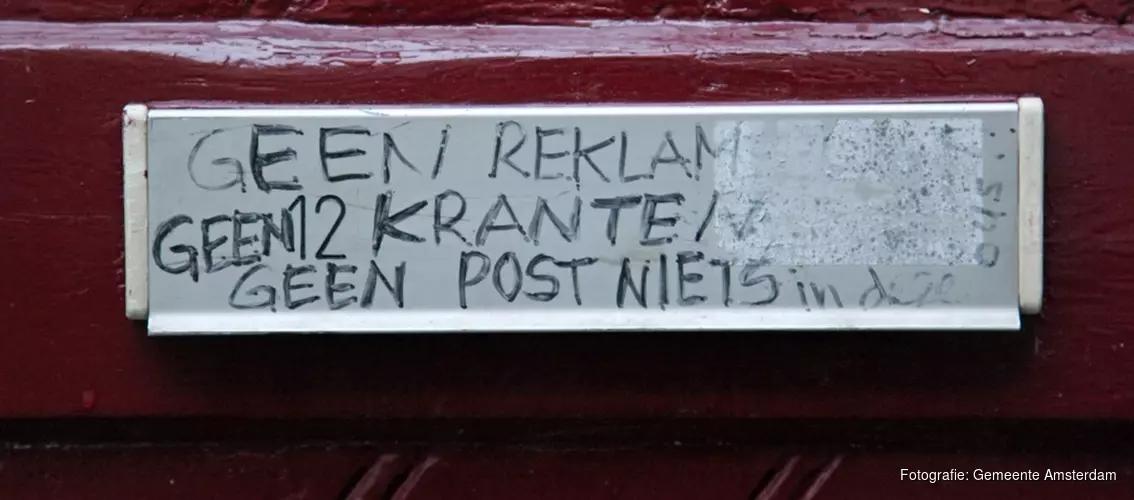 GEEN REKLAM
GEEN 12 KRANTEN
GEEN POST NIETS in deze
Fotografie: Gemeente Amsterdam